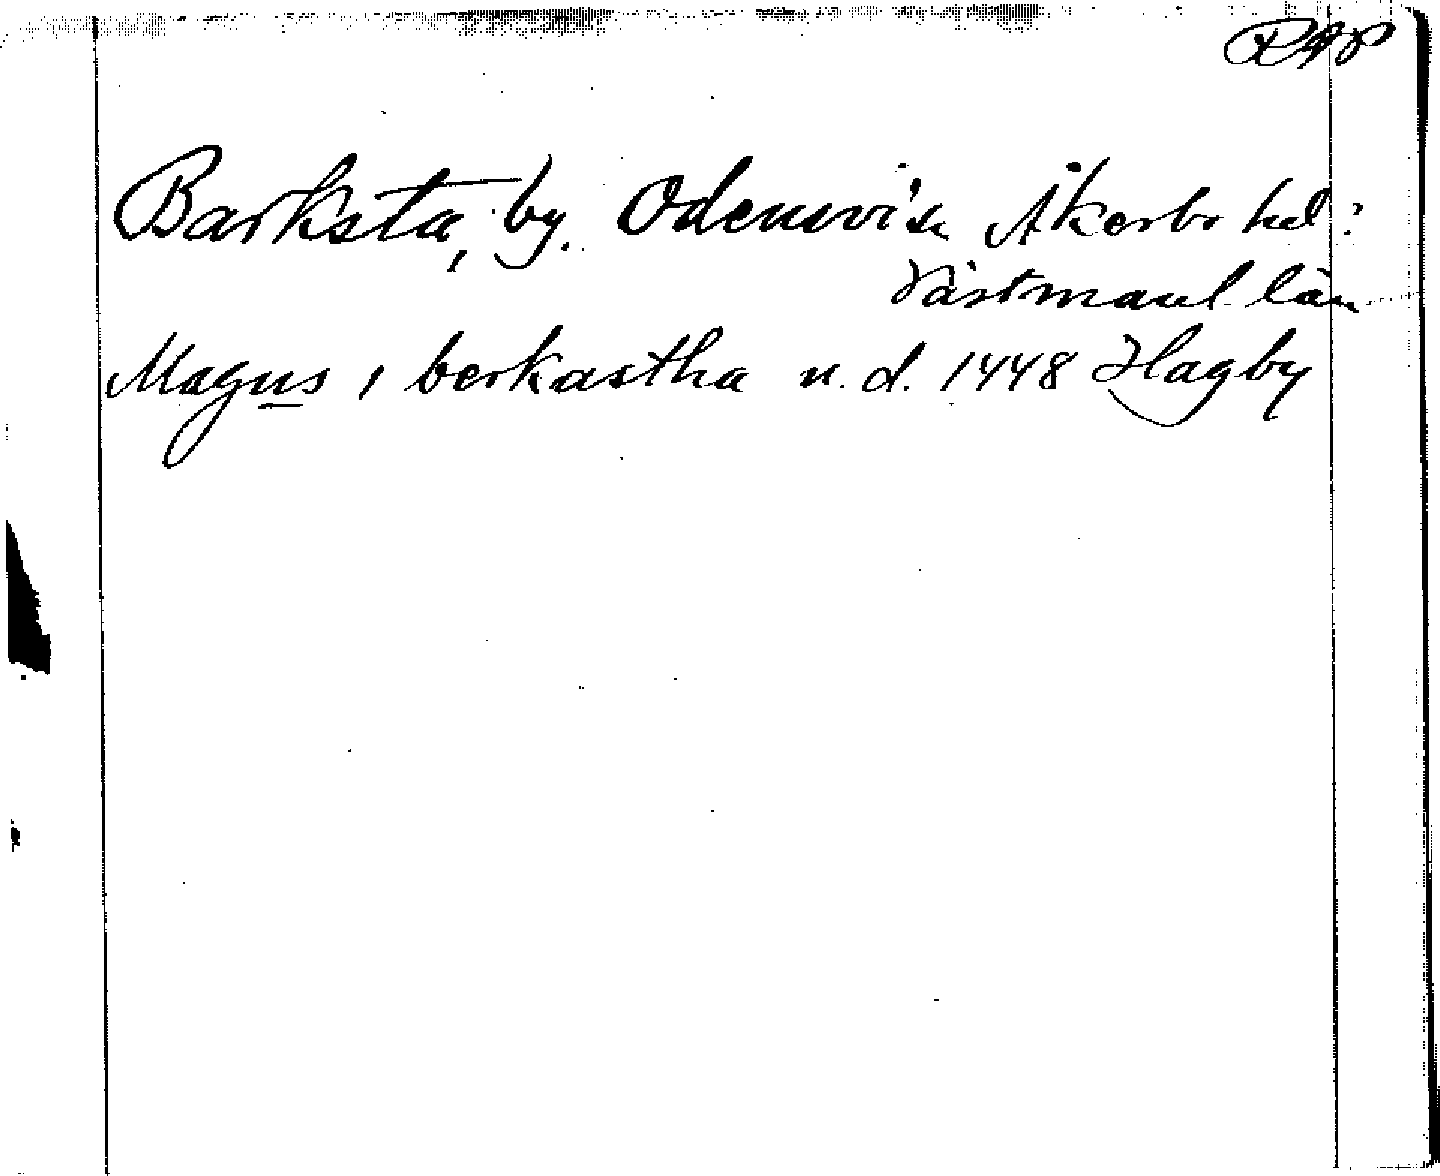 RAP
Barksta, by. Odensvi sn Åkerbo hd:
Västmanl. län
Magnus i berkastha n.d. 1448 Hagby